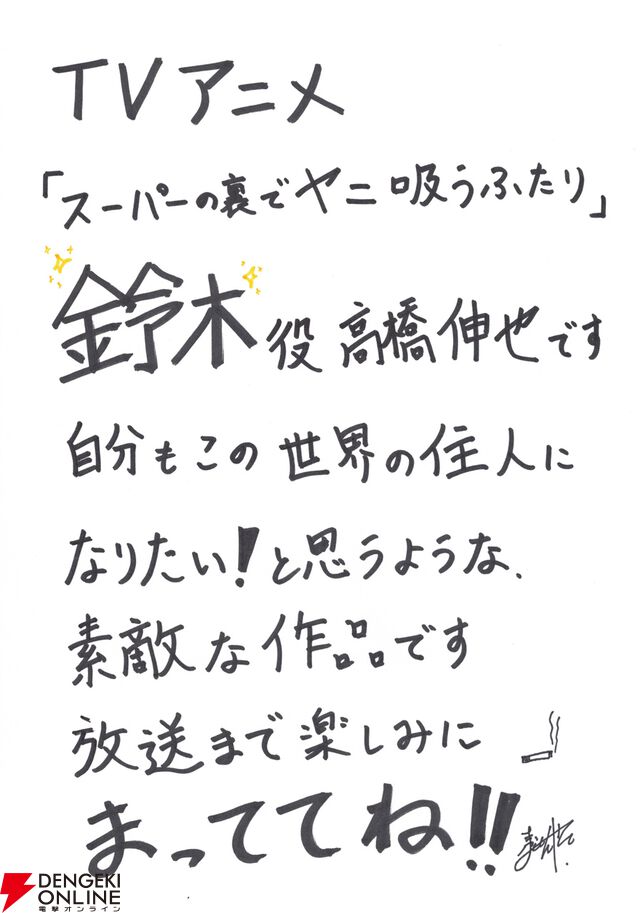 TVアニメ
「スーパーの裏でヤニ吸うふたり」
鈴木役 高橋伸也です
自分もこの世界の住人に
なりたい!と思うような、
素敵な作品です
放送まで楽しみに
まっててね!!
DENGEKI
ONLINE
電撃オンライン